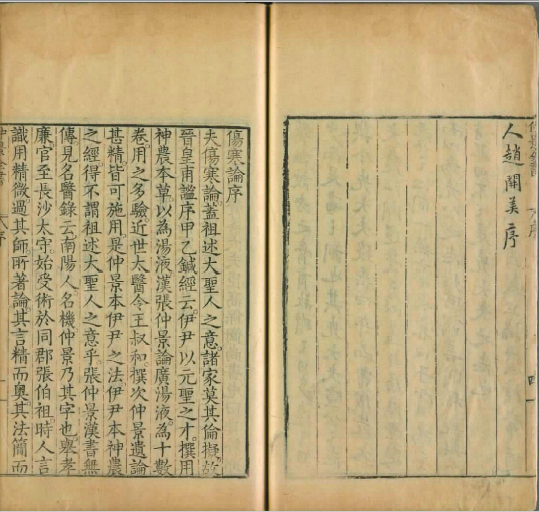 人趙開美序
傷寒論序
夫傷寒論蓋祖述大聖人之意諸家莫其倫擬故
晉皇甫謐序甲乙鍼經云伊尹以元聖之才撰用
神農本草以為湯液漢張仲景論廣湯液為十數
卷用之多驗近世太醫令王叔和撰次仲景遺論
甚精皆可施用是仲景本伊尹之法伊尹本神農
之經得不謂祖述大聖人之意乎張仲景漢書無
傳見名醫錄云南陽人名機仲景乃其字也舉孝
廉官至長沙太守始受術於同郡張伯祖時人言
識用精微過其師所著論其言精而奧其法簡而